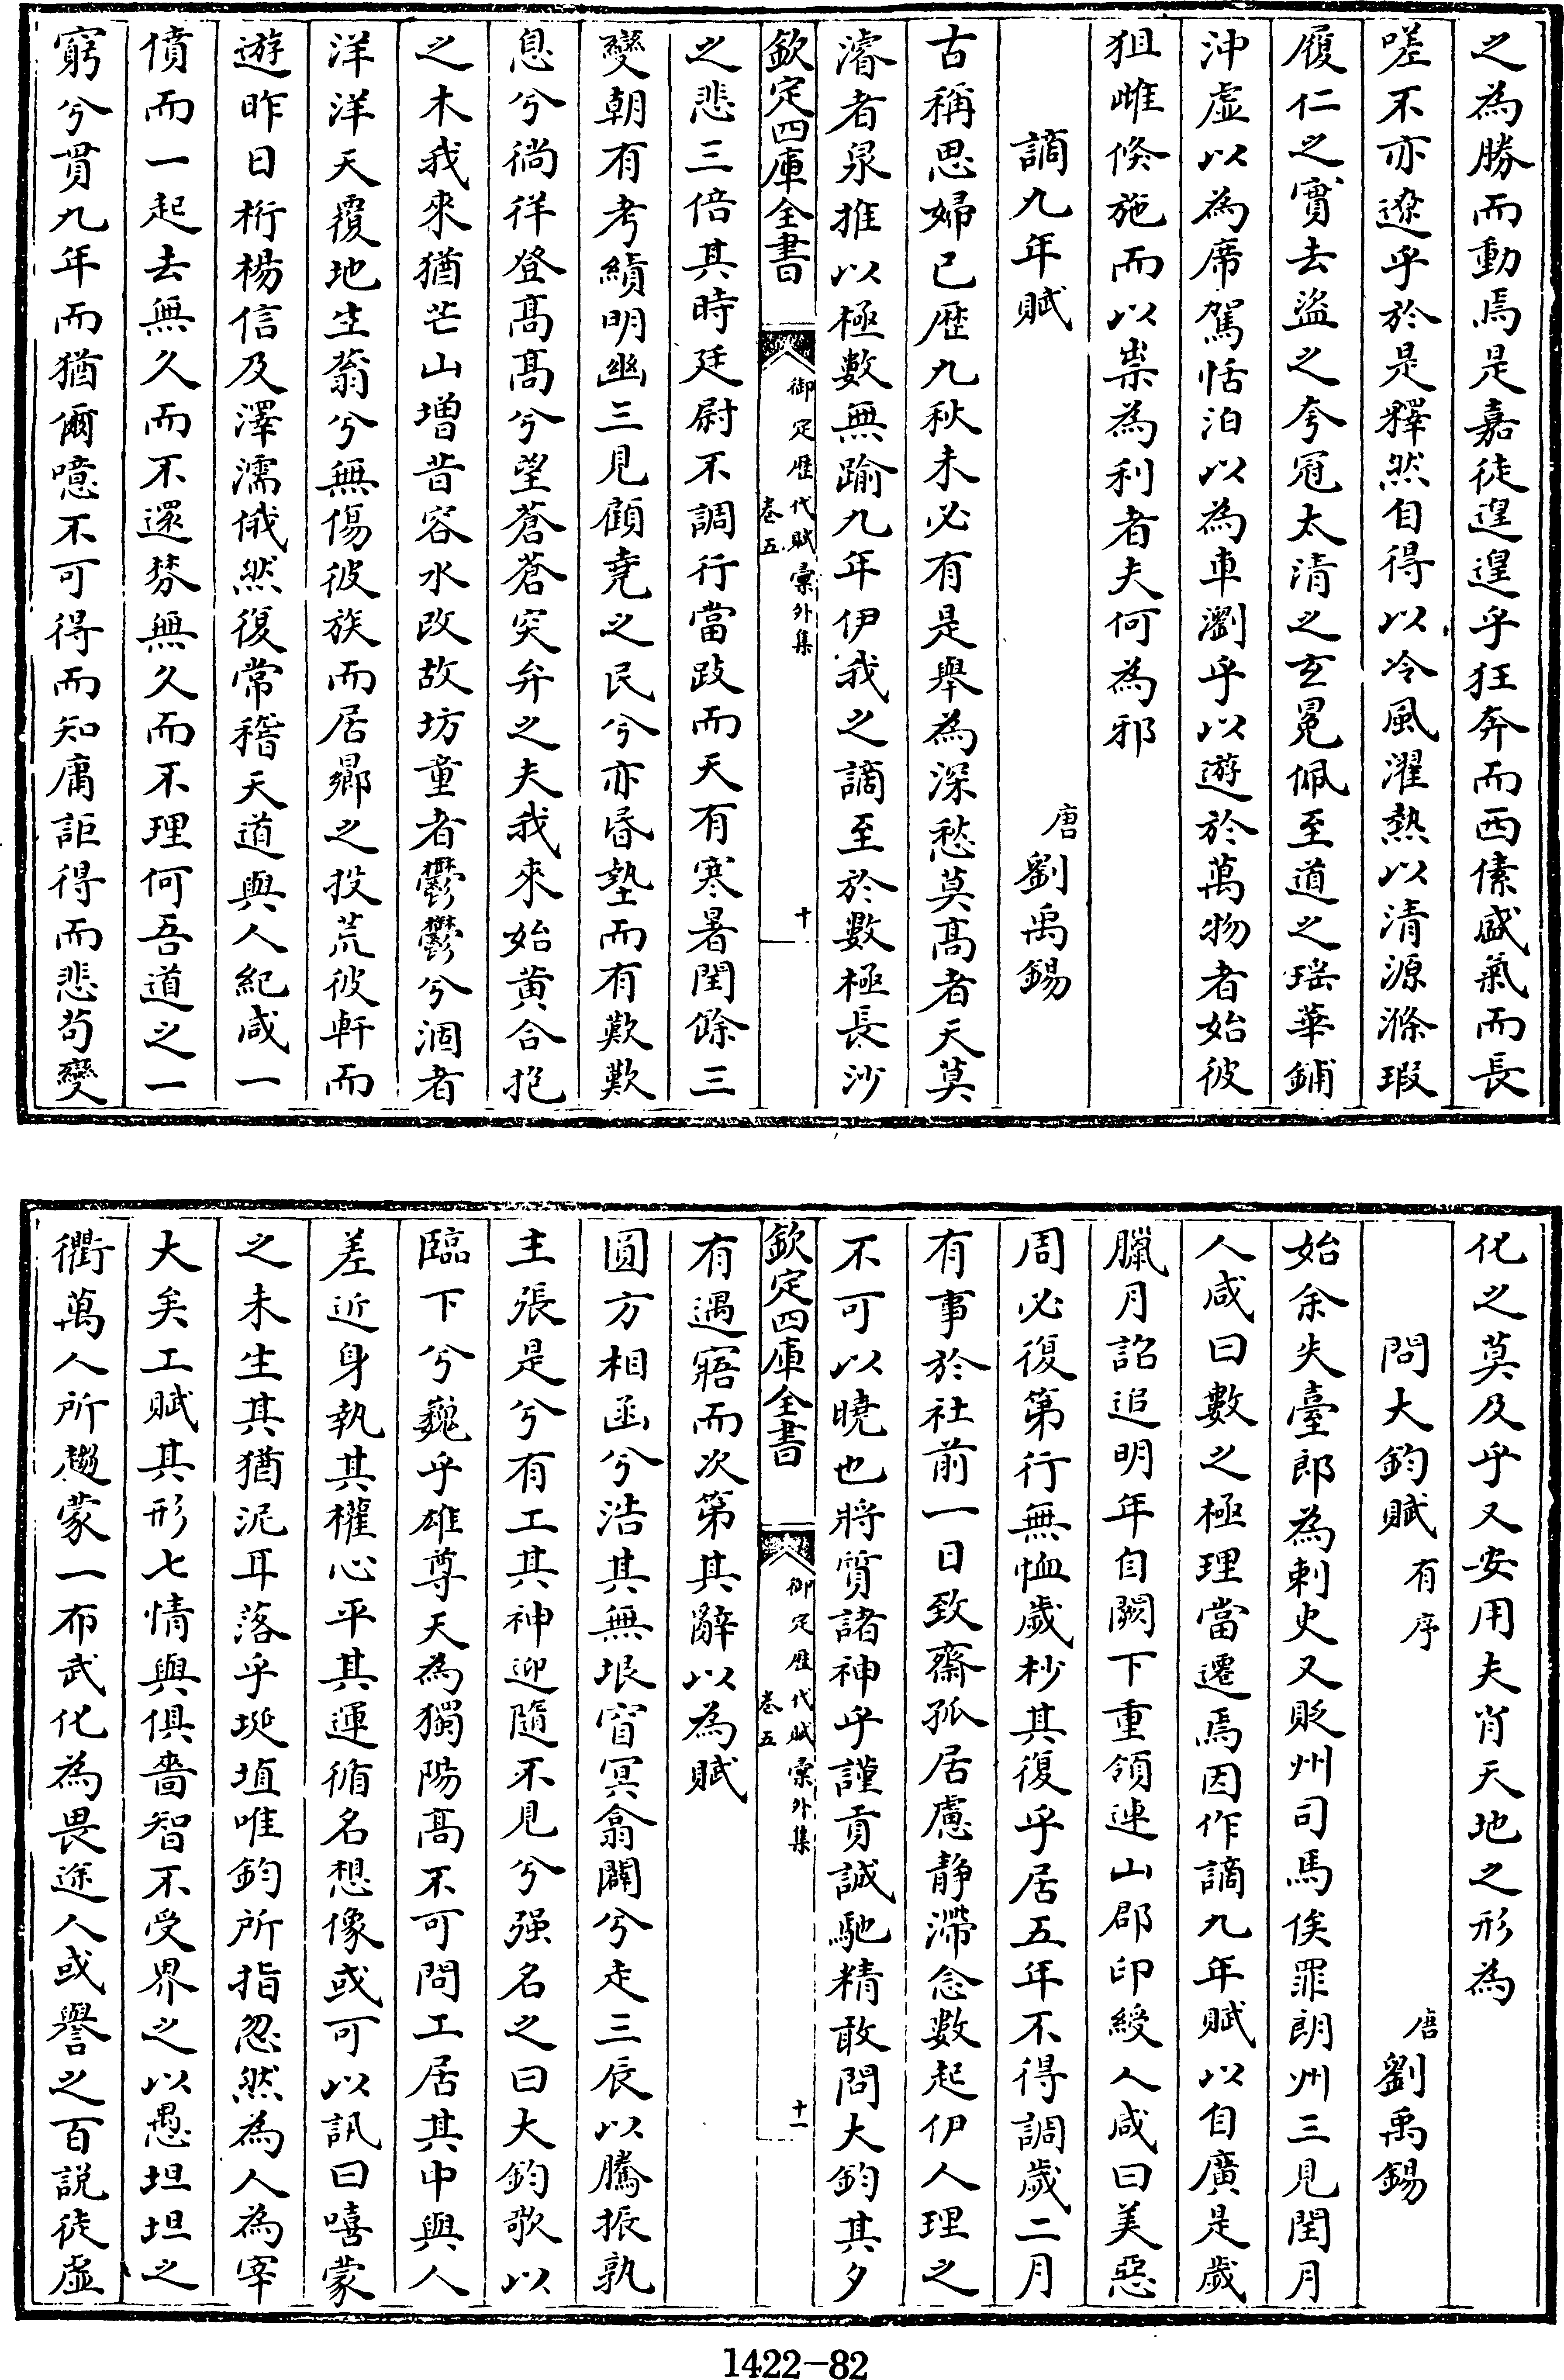 之為勝而動焉是嘉徒遑遑乎狂奔而西傃盛氣而長
嗟不亦遼乎於是釋然自得以冷風濯熱以清源滌瑕
履仁之實去盜之夸冠太清之玄冕佩至道之瑶華鋪
沖虛以為席駕恬泊以為車瀏乎以遊於萬物者始彼
狙雌倏施而以祟為利者夫何為邪
謫九年賦
唐劉禹錫
古稱思婦已歷九秋未必有是舉為深愁莫髙者天莫
濬者泉推以極數無踰九年伊我之謫至於數極長沙
欽定四庫全書
御定歷代賦彚外集
卷五
十
之悲三倍其時廷尉不調行當跂而天有寒暑閏餘三
變朝有考績明幽三見顧堯之民兮亦昏墊而有歎歎
息兮徜徉登髙髙兮望蒼蒼突弁之夫我來始黄合抱
之木我來猶芒山増昔容水改故坊童者鬱鬱兮涸者
洋洋天覆地生蓊兮無傷彼族而居鄉之投荒彼軒而
遊昨日桁楊信及澤濡俄然復常稽天道與人紀咸一
僨而一起去無久而不還棼無久而不理何吾道之一
窮兮貫九年而猶爾噫不可得而知庸詎得而悲茍變
化之莫及乎又安用夫肖天地之形為
問大鈞賦有序
唐劉禹錫
始余失臺郎為刺史又貶州司馬俟罪朗州三見閏月
人咸曰數之極理當遷焉因作謫九年賦以自廣是歳
臘月詔追明年自闕下重領連山郡印綬人咸曰美惡
周必復第行無恤歳杪其復乎居五年不得調歳二月
有事於社前一日致齋孤居慮静滯念數起伊人理之
不可以曉也將質諸神乎謹貢誠馳精敢問大鈞其夕
欽定四庫全書
御定歷代賦彚外集
卷五
十一
有遇遌寤而次第其辭以為賦
圓方相函兮浩其無垠窅冥翕闢兮走三辰以騰振孰
主張是兮有工其神迎隨不見兮强名之曰大鈞歌以
臨下兮巍乎雄尊天為獨陽髙不可問工居其中與人
差近身執其權心平其運循名想像或可以訊曰嘻蒙
之未生其猶泥耳落乎埏埴唯鈞所指忽然為人為宰
大矣工賦其形七情與俱嗇智不受界之以愚坦坦之
衢萬人所趨蒙一布武化為畏途人或譽之百説徒虛
1422-82